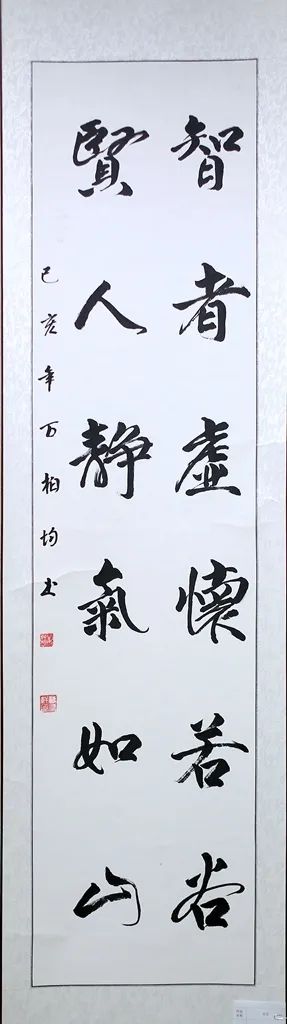 智者虛懷若谷
賢人靜氣如山
己亥年 百柏均书